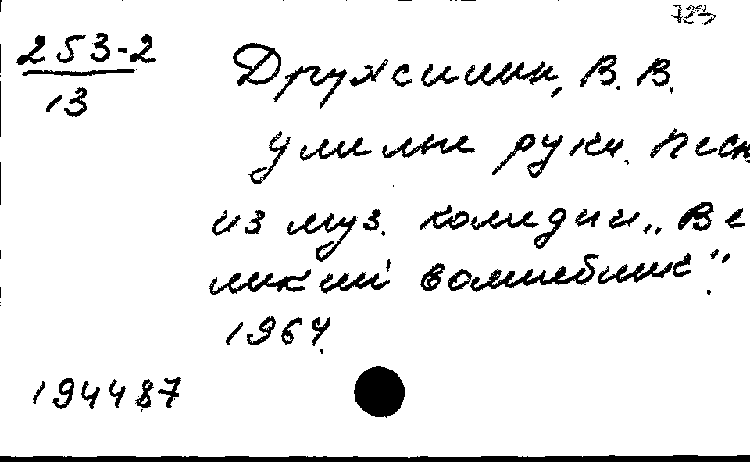 723
253-2
13
Дружинин, В. В.
Умелые руки. Песн
из муз. комедии „Ве
ликий волшебник".
1964.
194487